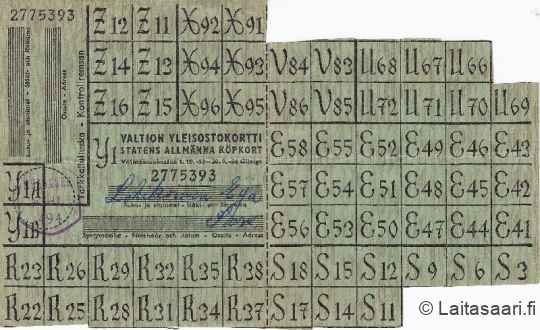 2775393
Z12 Z11 X92 X91
Z14 Z13 X94 X93 V84 V83 U68 U67 U66
Z16 Z15 X96 X95 V86 V85 U72 U71 U70 U69
Suku- ja etunimet - Släkt- och förnamn
Osoite - Adress
Tarkkailuliuska - Kontrollremsan
Y1 VALTION YLEISOSTOKORTTI
STATENS ALLMÄNNA KÖPKORT
2775393
Suku- ja etunimet - Släkt- och förnamn
Syntymäaika - Födelseår och datum - Osoite - Adress
E58 E55 E52 E49 E46 E43
Y1A E57 E54 E51 E48 E45 E42
Y1B E56 E53 E50 E47 E44 E41
R23 R26 R29 R32 R35 R38 S18 S15 S12 S9 S6 S3
R22 R25 R28 R31 R34 R37 S17 S14 S11
© Laitasaari.fi